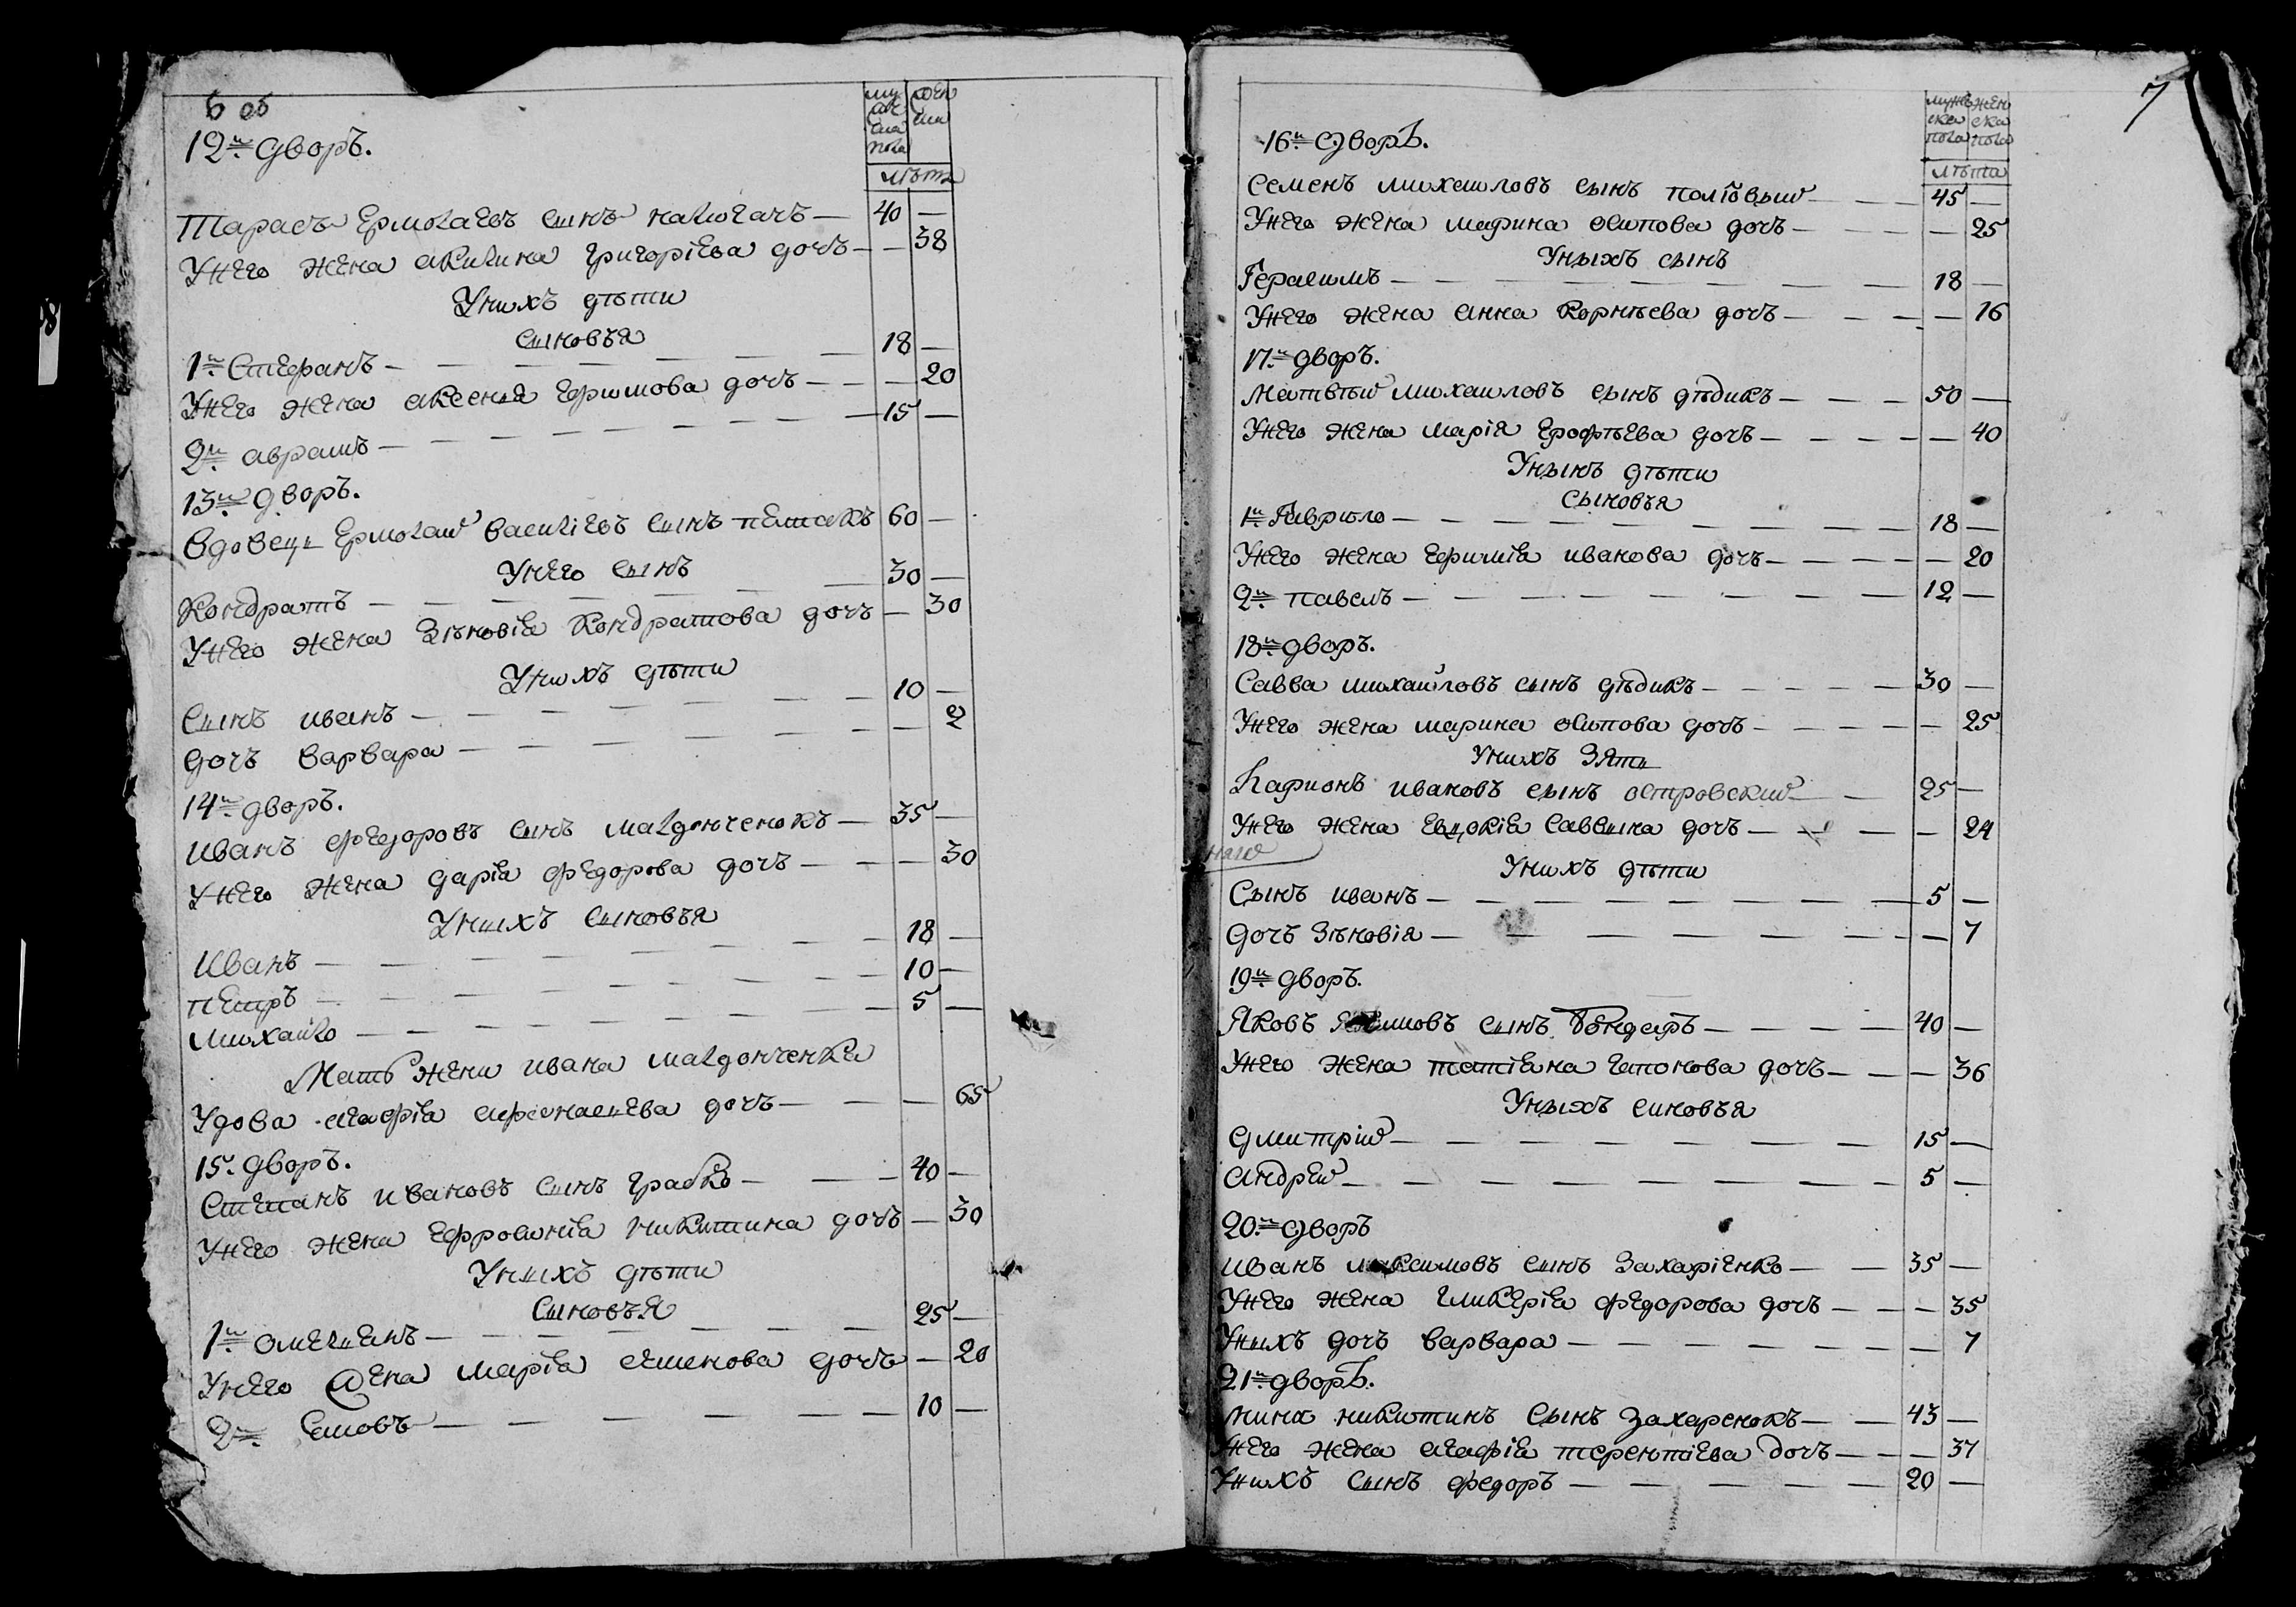 6 об
муж
ска
пола
жен
ска
12й дворъ.
лѣта
Тарасъ Ермолаевъ сынъ — 40 —
Унего жена акилина григоріева дочъ — — 38
Унихъ дѣти
сыновъя
1й Стефанъ — 18 —
Унего жена аксенія Ефимова дочъ — — 20
2й аврамъ — 15 —
13й дворъ.
Вдовецъ Ермолай василіевъ сынъ пешакъ 60 —
Унего сынъ
Кондратъ — 30 —
Унего жена Зѣновія Кондратова дочъ — 30
Унихъ дѣти
Сынъ иванъ — 10 —
Дочъ варвара — — 2
14й дворъ.
Иванъ федоровъ сынъ малдонченокъ — 35 —
Унего жена дарія федорова дочъ — — 30
Унихъ сыновъя
Иванъ — 18 —
петръ — 10 —
михайло — 5 —
Мать жени ивана малдонченка
Удова агафія афанасиева дочъ — — 65
15. дворъ.
Степанъ ивановъ сынъ грабко — 40 —
Унего жена Ефросинія никитина дочъ — 30
Унихъ дѣти
Сыновъя
1й омелиянъ — 25 —
Унего жена марія дочъ — 20
2й — 10 —
7
мужс
ска
пола
жен
ска
пола
16й дворъ.
лѣта
Семенъ михаиловъ сынъ — 45 —
Унего жена марина осипова дочъ — — 25
Уныхъ сынъ
Герасимъ — 18 —
Унего жена анна Корнѣева дочъ — — 16
17й дворъ.
Матвѣй михаиловъ сынъ дѣдикъ — 50 —
Унего жена марія Ерофѣева дочъ — — 40
Уныхъ дѣти
Сыновъя
1й Гаврило — 18 —
Унего жена Ефимія иванова дочъ — — 20
2й павелъ — 12 —
18й дворъ.
Савва михайловъ сынъ дѣдикъ — 30 —
Унего жена марина осипова дочъ — — 25
Унихъ Зять
Ларионъ ивановъ сынъ островский — 25 —
Унего жена Евдокія Саввина дочъ — — 24
Унихъ дѣти
Сынъ иванъ — 5 —
Дочъ Зѣновія — — 7
19й дворъ.
Яковъ сынъ бондаръ — 40 —
Унего жена татіяна дочъ — — 36
Уныхъ синовъя
Дмитрій — 15 —
андрей — 5 —
20й дворъ
Иванъ максимовъ сынъ Захаріенко — 35 —
Унего жена гликерія федорова дочъ — — 35
Унихъ дочъ варвара — — 7
21й дворъ.
Мина никитинъ Сынъ Захаренокъ — 43 —
Унего жена агафія терентіева дочъ — — 37
Унихъ Сынъ федоръ — 20 —